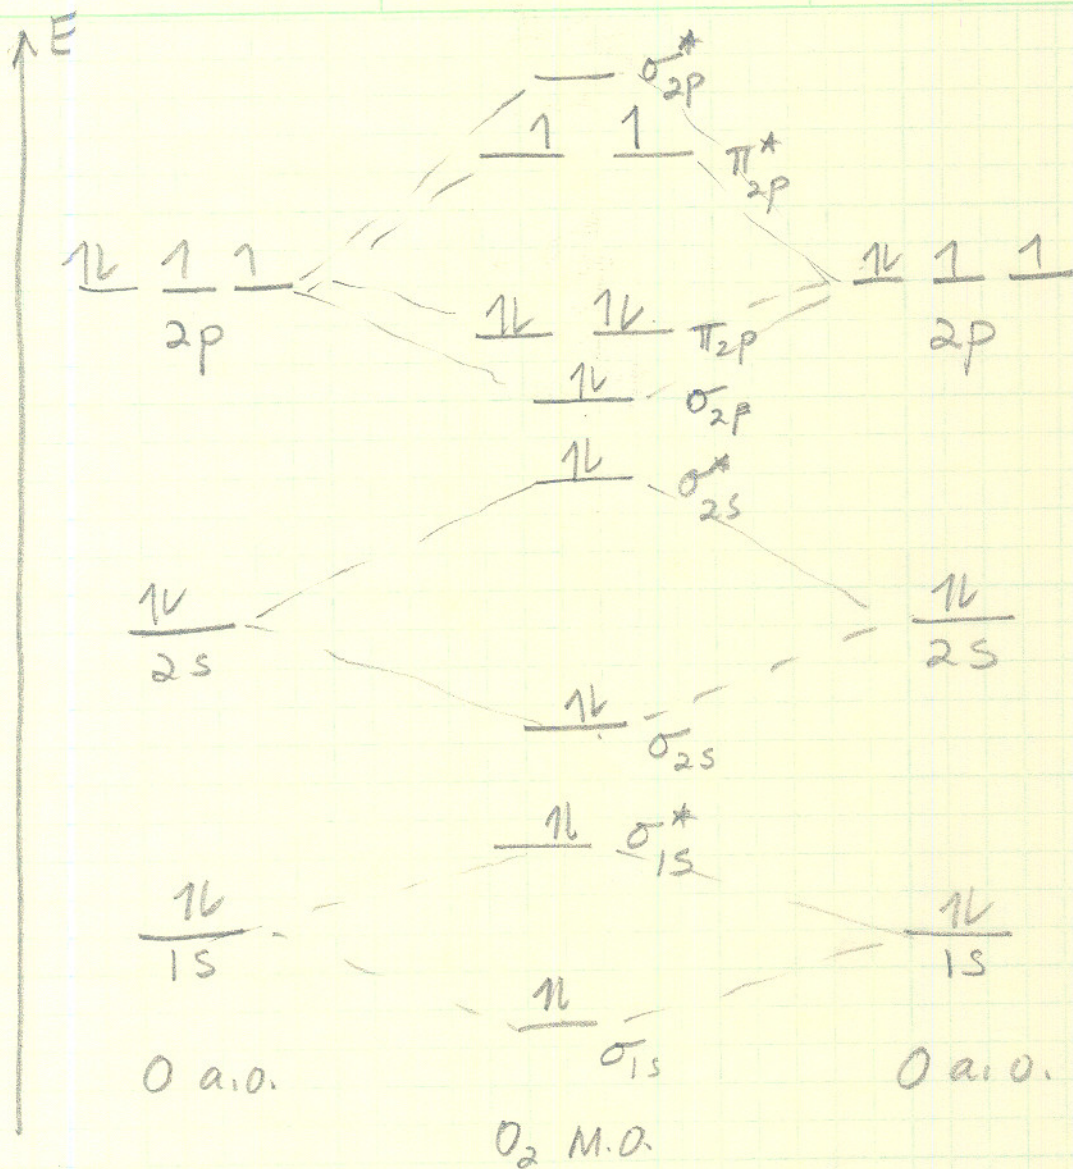 E
σ*2p
1 1 π*2p
1L 1 1 1L 1 1
2p 1L 1L π2p 2p
1L σ2p
1L σ*2s
1L 1L
2s 2s
1L σ2s
1L σ*1s
1L 1L
1s 1s
1L σ1s
O a.o. O a.o.
O2 M.O.